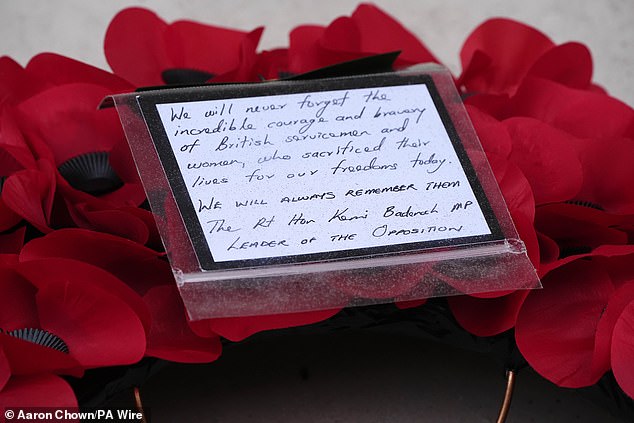 We will never forget the
incredible courage and bravery
of British servicemen and
women, who sacrificed their
lives for our freedoms today.
WE WILL ALWAYS REMEMBER THEM
The Rt Hon Kemi Badenoch MP
LEADER OF THE OPPOSITION
© Aaron Chown/PA Wire